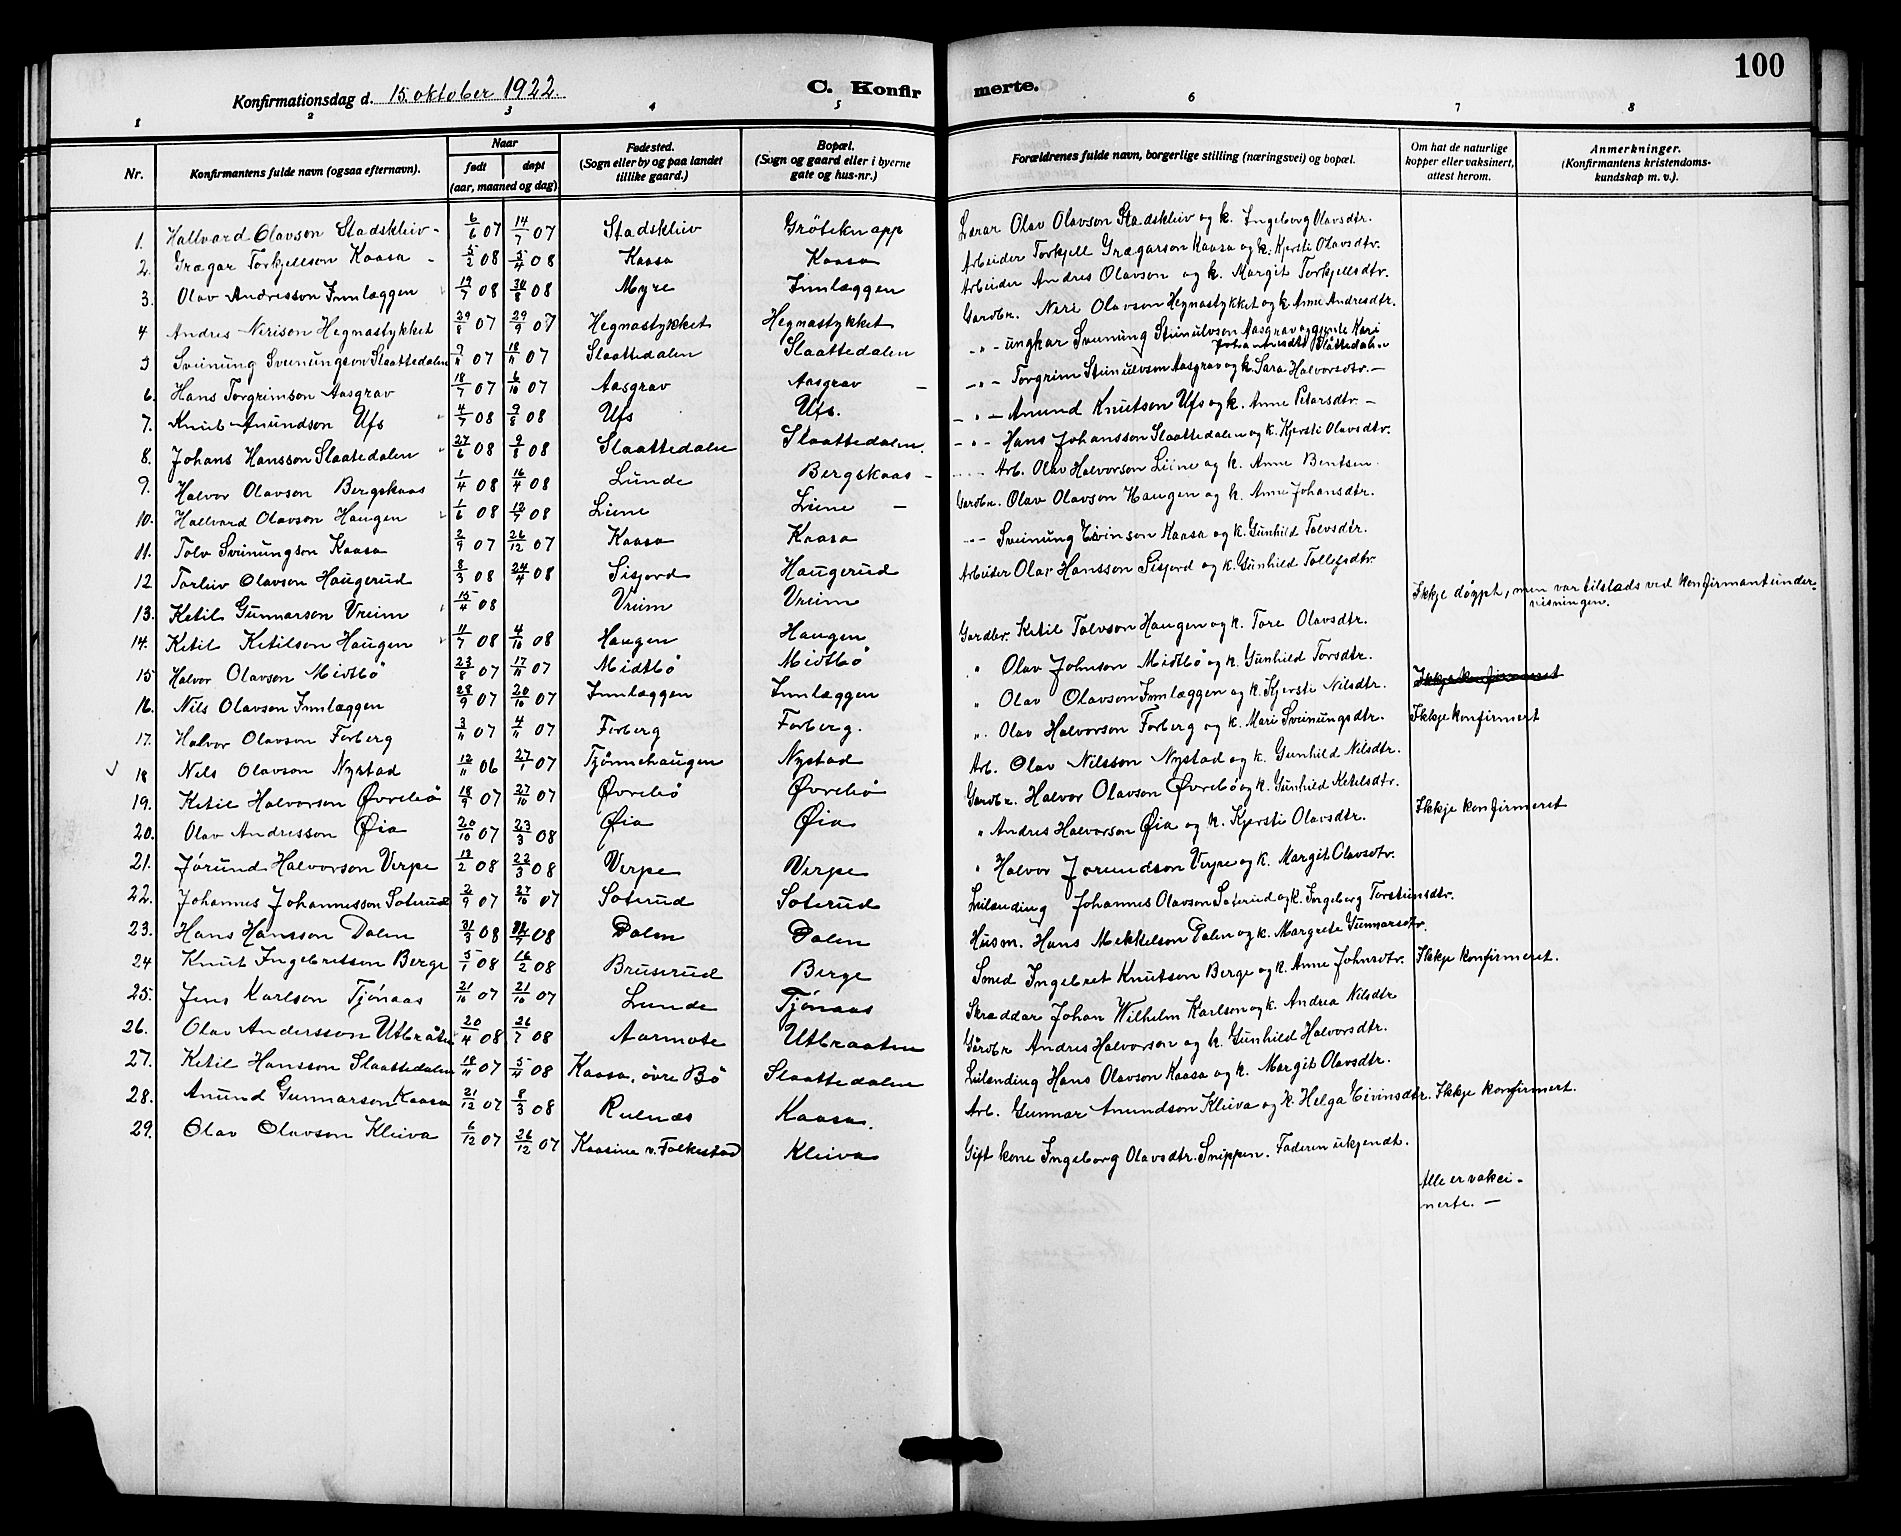 100
Konfirmationsdag d. 15. oktober 1922.
C. Konfirmerte.
1 2 3 4 5 6 7 8
Nr. Konfirmantens fulde navn (ogsaa efternavn). Naar født døpt (aar, maaned og dag) Fødested. (Sogn eller by og paa landet tillike gaard.) Bopæl. (Sogn og gaard eller i byerne gate og hus-nr.) Forældrenes fulde navn, borgerlige stilling (næringsvei) og bopæl. Om hat de naturlige kopper eller vaksinert, attest herom. Anmerkninger. (Konfirmantens kristendoms-kundskap m. v.).
1. Hallvard Olavson Stadskleiv 6/6 07 14/7 07 Stadskleiv Gröteknapp Lærar Olav Olavson Stadskleiv og k. Ingeborg Olavsdtr.
2. Grægar Torkjellson Kaasa 5/2 08 5/4 08 Kaasa Kaasa Arbeider Torkjell Grægarson Kaasa og k. Kjersti Olavsdtr.
3. Olav Andresson Innlæggen 19/7 08 30/8 08 Myre Innlæggen Arbeider Andres Olavson og k. Margit Torkjellsdtr.
4 Andres Nerison Hegnastykket 29/8 07 29/9 07 Hegnastykket Hegnastykket Gardbr. Neri Olavson Hegnastykket og k. Anne Andresdtr.
5 Sveinung Sveinungson Slaattedalen 9/11 07 18/11 07 Slaattedalen Slaattedalen - " - ungkar Sveinung Steinulvson Aasgrav og gjente Kari Johannesdtr Slåttedalen
6. Hans Torgrimson Aasgrav 18/7 07 6/10 07 Aasgrav Aasgrav - " - Torgrim Steinulvson Aasgrav og k. Sara Halvorsdtr. -
7. Knut Anundson Ufs 4/7 08 9/8 08 Ufs Ufs. - " - Anund Knutson Ufs og k. Anne Petarsdtr. -
8. Johans Hansson Slaatedalen 27/6 08 9/8 08 Slaattedalen Slaattedalen. - " - Hans Johansson Slaattedalen og k. Kjersti Olavsdtr.
9. Halvor Olavson Bergskaas 1/4 08 16/4 08 Lunde Bergskaas - Arb. Olav Halvorson Leine og k. Anne Bentsen.
10. Hallvard Olavson Haugen 1/6 08 12/7 08 Leine Leine - Gardbr. Olav Olavson Haugen og k. Anne Johansdtr.
11. Tolv Sveinungson Kaasa 2/9 07 26/12 07 Kaasa Kaasa - " - Sveinung Eivinson Kaasa og k. Gunhild Tolvsdtr.
12 Torleiv Olavson Haugerud 8/3 08 24/4 08 Sisjord Haugerud Arbeider Olav Hansson Sisjord og k. Gunhild Tollefsdtr.
13. Ketil Gunnarson Vreim 15/4 08 Vreim Vreim Ikkje döypt, men var tilstads ved konfirmantundervisningen.
14. Ketil Ketilson Haugen 11/7 08 4/10 08 Haugen Haugen Gardbr. Ketil Tolvson Haugen og k. Tore Olavsdtr.
15 Halvor Olavson Midtbö 23/8 07 17/11 07 Midtbö Midtbö " Olav Johnson Midtbö og k. Gunhild Torsdtr.
16. Nils Olavson Innlæggen 28/9 07 20/10 07 Innlæggen Innlæggen " Olav Olavson Innlæggen og k. Kjersti Nilsdtr. Ikkje konfirmeret
17. Halvor Olavson Forberg 3/11 07 4/11 07 Forberg Forberg. " Olav Halvorson Forberg og k. Mari Sveinungsdtr. Ikkje konfirmert
18 Nils Olavson Nystad 12/11 06 27/1 07 Tjønnehaugen Nystad Arb. Olav Nilsson Nystad og k. Gunhild Nilsdtr.
19. Ketil Halvorson Øvrebö 18/9 07 27/10 07 Øvrebö Øvrebö Gardbr. Halvor Olavson Øvrebö og k. Gunhild Ketilsdtr.
20. Olav Andresson Øia 20/10 07 23/3 08 Øia Øia " Andres Halvorson Øia og k. Kjersti Olavsdtr. Ikkje konfirmeret
21. Jörund Halvorson Verpe 13/2 08 22/3 08 Verpe Verpe " Halvor Jorundson Verpe og k. Margit Olavsdtr.
22. Johannes Johannesson Soterud 2/9 07 27/10 07 Soterud Soterud Leilending Johannes Olavson Soterud og k. Ingeborg Torsteinsdtr.
23. Hans Hansson Dalen 31/3 08 08 Dalen Dalen Husm. Hans Mekkelson Dalen og k. Margrete Gunnarsdtr.
24 Knut Ingebretson Berge 5/1 08 16/2 08 Bruserud Berge Smed Ingebret Knutson Berge og k. Anne Johnsdtr. Ikkje konfirmeret.
25. Jens Karlson Tjönaas 21/10 07 21/10 07 Lunde Tjönaas Skraddar Johan Wilhelm Karlson og k. Andrea Nilsdtr
26. Olav Andersson Utbråten 20/4 08 26/7 08 Aarmote Utbraaten Gårdbr Andres Halvorson og k. Gunhild Halvorsdtr.
27. Ketil Hansson Slaattedalen 18/11 07 5/4 08 Kaasa, övre Bö Slaattedalen Leilending Hans Olavson Kaasa og k. Margit Olavsdtr.
28. Anund Gunnarson Kaasa 21/12 07 8/3 08 Ruenæs Kaasa. Arb. Gunnar Anundson Kleiva og k. Helga Eivinsdtr. Ikkje konfirmert.
29. Olav Olavson Kleiva 6/12 07 26/12 07 Kaasine v. Folkestad Kleiva Gift kone Ingeborg Olavsdtr. Snippen. Faderen ukjendt.
Alle er vaksi-
nerte. -